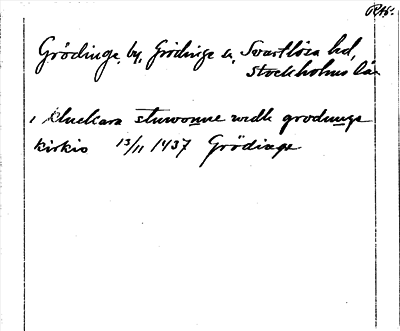 RAp.
Grödinge, by, Grödinge sn, Svartlösa hd,
Stockholms län
i kluckara stuwonne widh grodunge
kirkio 13/11 1437 Grödinge